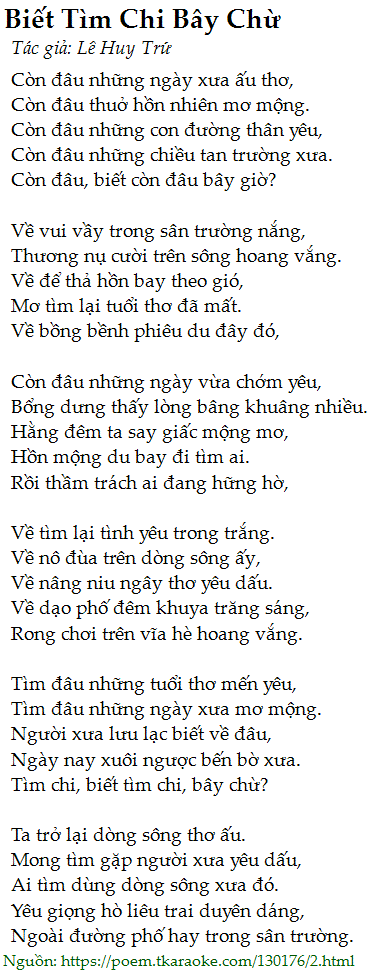 Biết Tìm Chi Bây Chừ
Tác giả: Lê Huy Trứ
Còn đâu những ngày xưa ấu thơ,
Còn đâu thuở hồn nhiên mơ mộng.
Còn đâu những con đường thân yêu,
Còn đâu những chiều tan trường xưa.
Còn đâu, biết còn đâu bây giờ?
Về vui vầy trong sân trường nắng,
Thương nụ cười trên sông hoang vắng.
Về để thả hồn bay theo gió,
Mơ tìm lại tuổi thơ đã mất.
Về bồng bềnh phiêu du đây đó,
Còn đâu những ngày vừa chớm yêu,
Bổng dưng thấy lòng bâng khuâng nhiều.
Hằng đêm ta say giấc mộng mơ,
Hồn mộng du bay đi tìm ai.
Rồi thầm trách ai đang hững hờ,
Về tìm lại tình yêu trong trắng.
Về nô đùa trên dòng sông ấy,
Về nâng niu ngây thơ yêu dấu.
Về dạo phố đêm khuya trăng sáng,
Rong chơi trên vĩa hè hoang vắng.
Tìm đâu những tuổi thơ mến yêu,
Tìm đâu những ngày xưa mơ mộng.
Người xưa lưu lạc biết về đâu,
Ngày nay xuôi ngược bến bờ xưa.
Tìm chi, biết tìm chi, bây chừ?
Ta trở lại dòng sông thơ ấu.
Mong tìm gặp người xưa yêu dấu,
Ai tìm dùng dòng sông xưa đó.
Yêu giọng hò liêu trai duyên dáng,
Ngoài đường phố hay trong sân trường.
Nguồn: https://poem.tkaraoke.com/130176/2.html